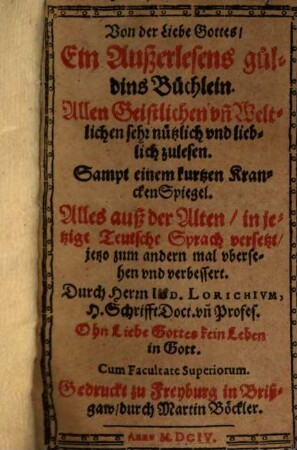 Von der Liebe Gottes/
Ein Außerlesens gül-
dins Büchlein.
Allen Geistlichen vñ Welt-
lichen sehr nützlich vnd lieb-
lich zulesen.
Sampt einem kurtzen Kran-
cken Spiegel.
Alles auß der Alten / in je-
tzige Teutsche Sprach versetzt/
jetzo zum andern mal vberse-
hen vnd verbessert.
Durch Herrn LORICHIVM,
H. Schrifft Doct. vñ Profes.
Ohn Liebe Gottes kein Leben
in Gott.
Cum Facultate Superiorum.
Gedruckt zu Freyburg in Briß-
gaw/durch Martin Böckler.
ANNO M.DCIV.